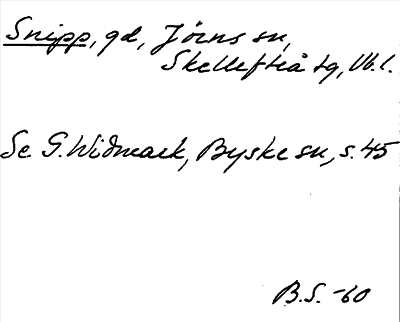 Snipp, gd, Jörns sn,
Skellefteå tg, Vb. l.
Se G. Widmark, Byske sn, s. 45
B.S. -60